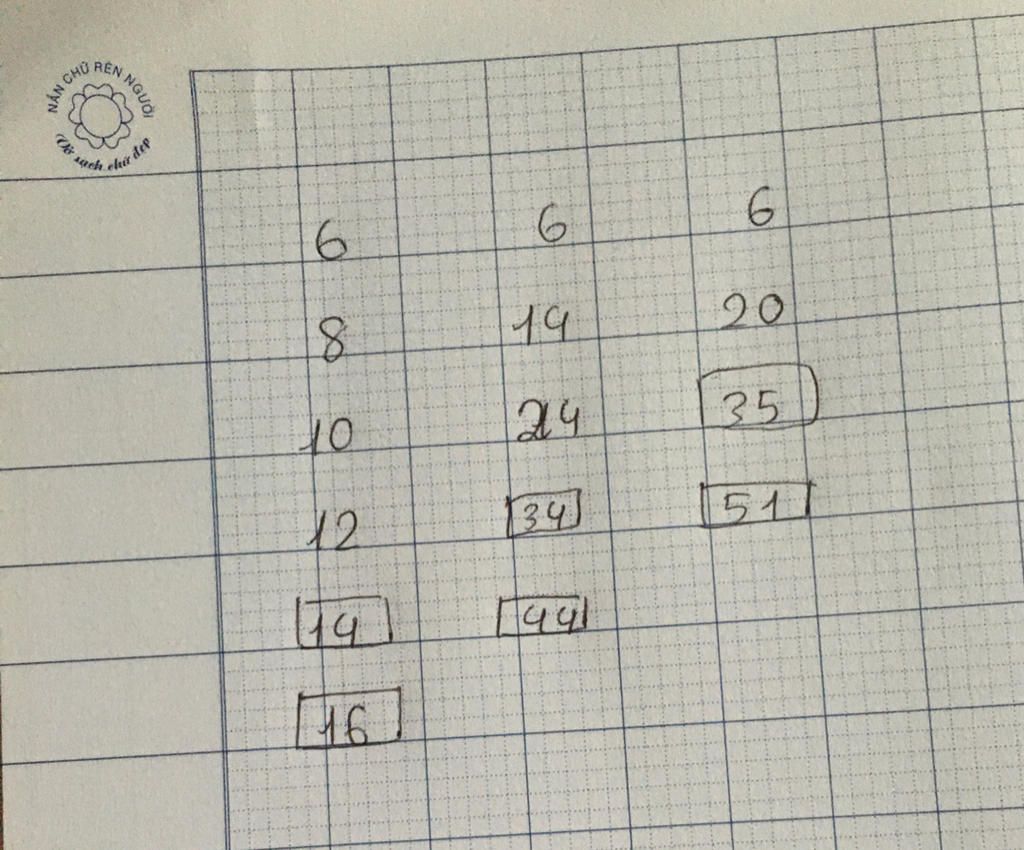 NẮN CHỮ RÈN NGƯỜI
Vở sạch chữ đẹp
6 6 6
8 14 20
10 24 35
12 34 51
14 44
16